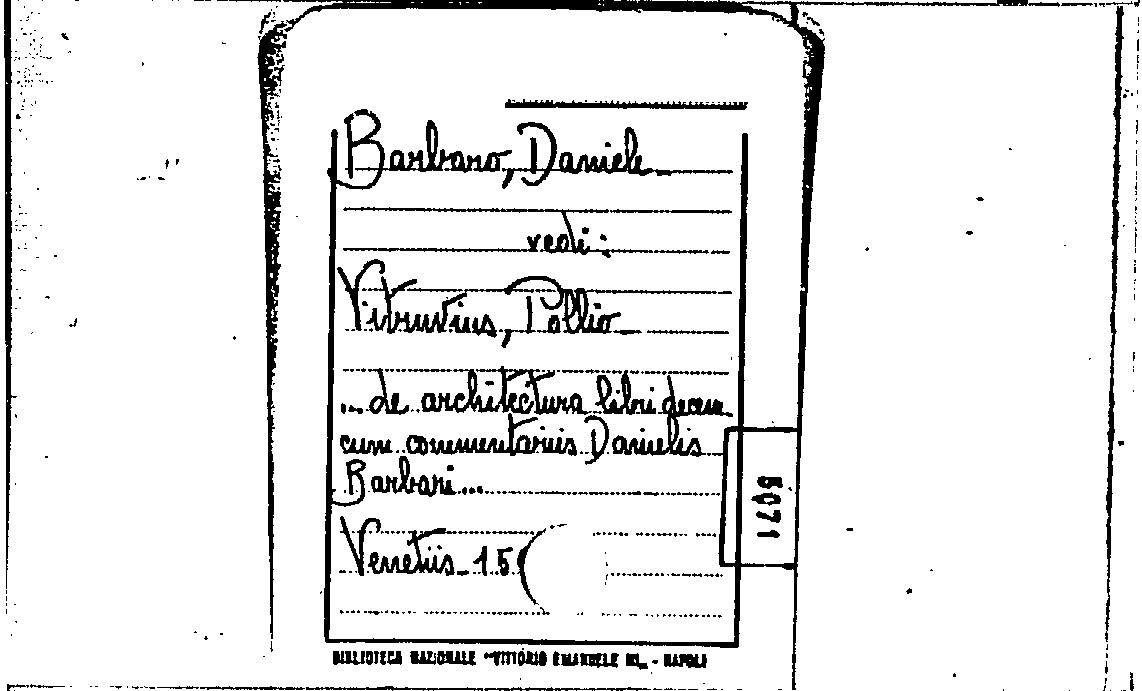 Barbaro, Daniele_
vedi:
Vitruvius, Pollio_
... de architectura libri decem
cum commentariis Danielis
Barbari...
Venetiis_ 15
BIBLIOTECA NAZIONALE "VITTORIO EMANUELE III„ - NAPOLI